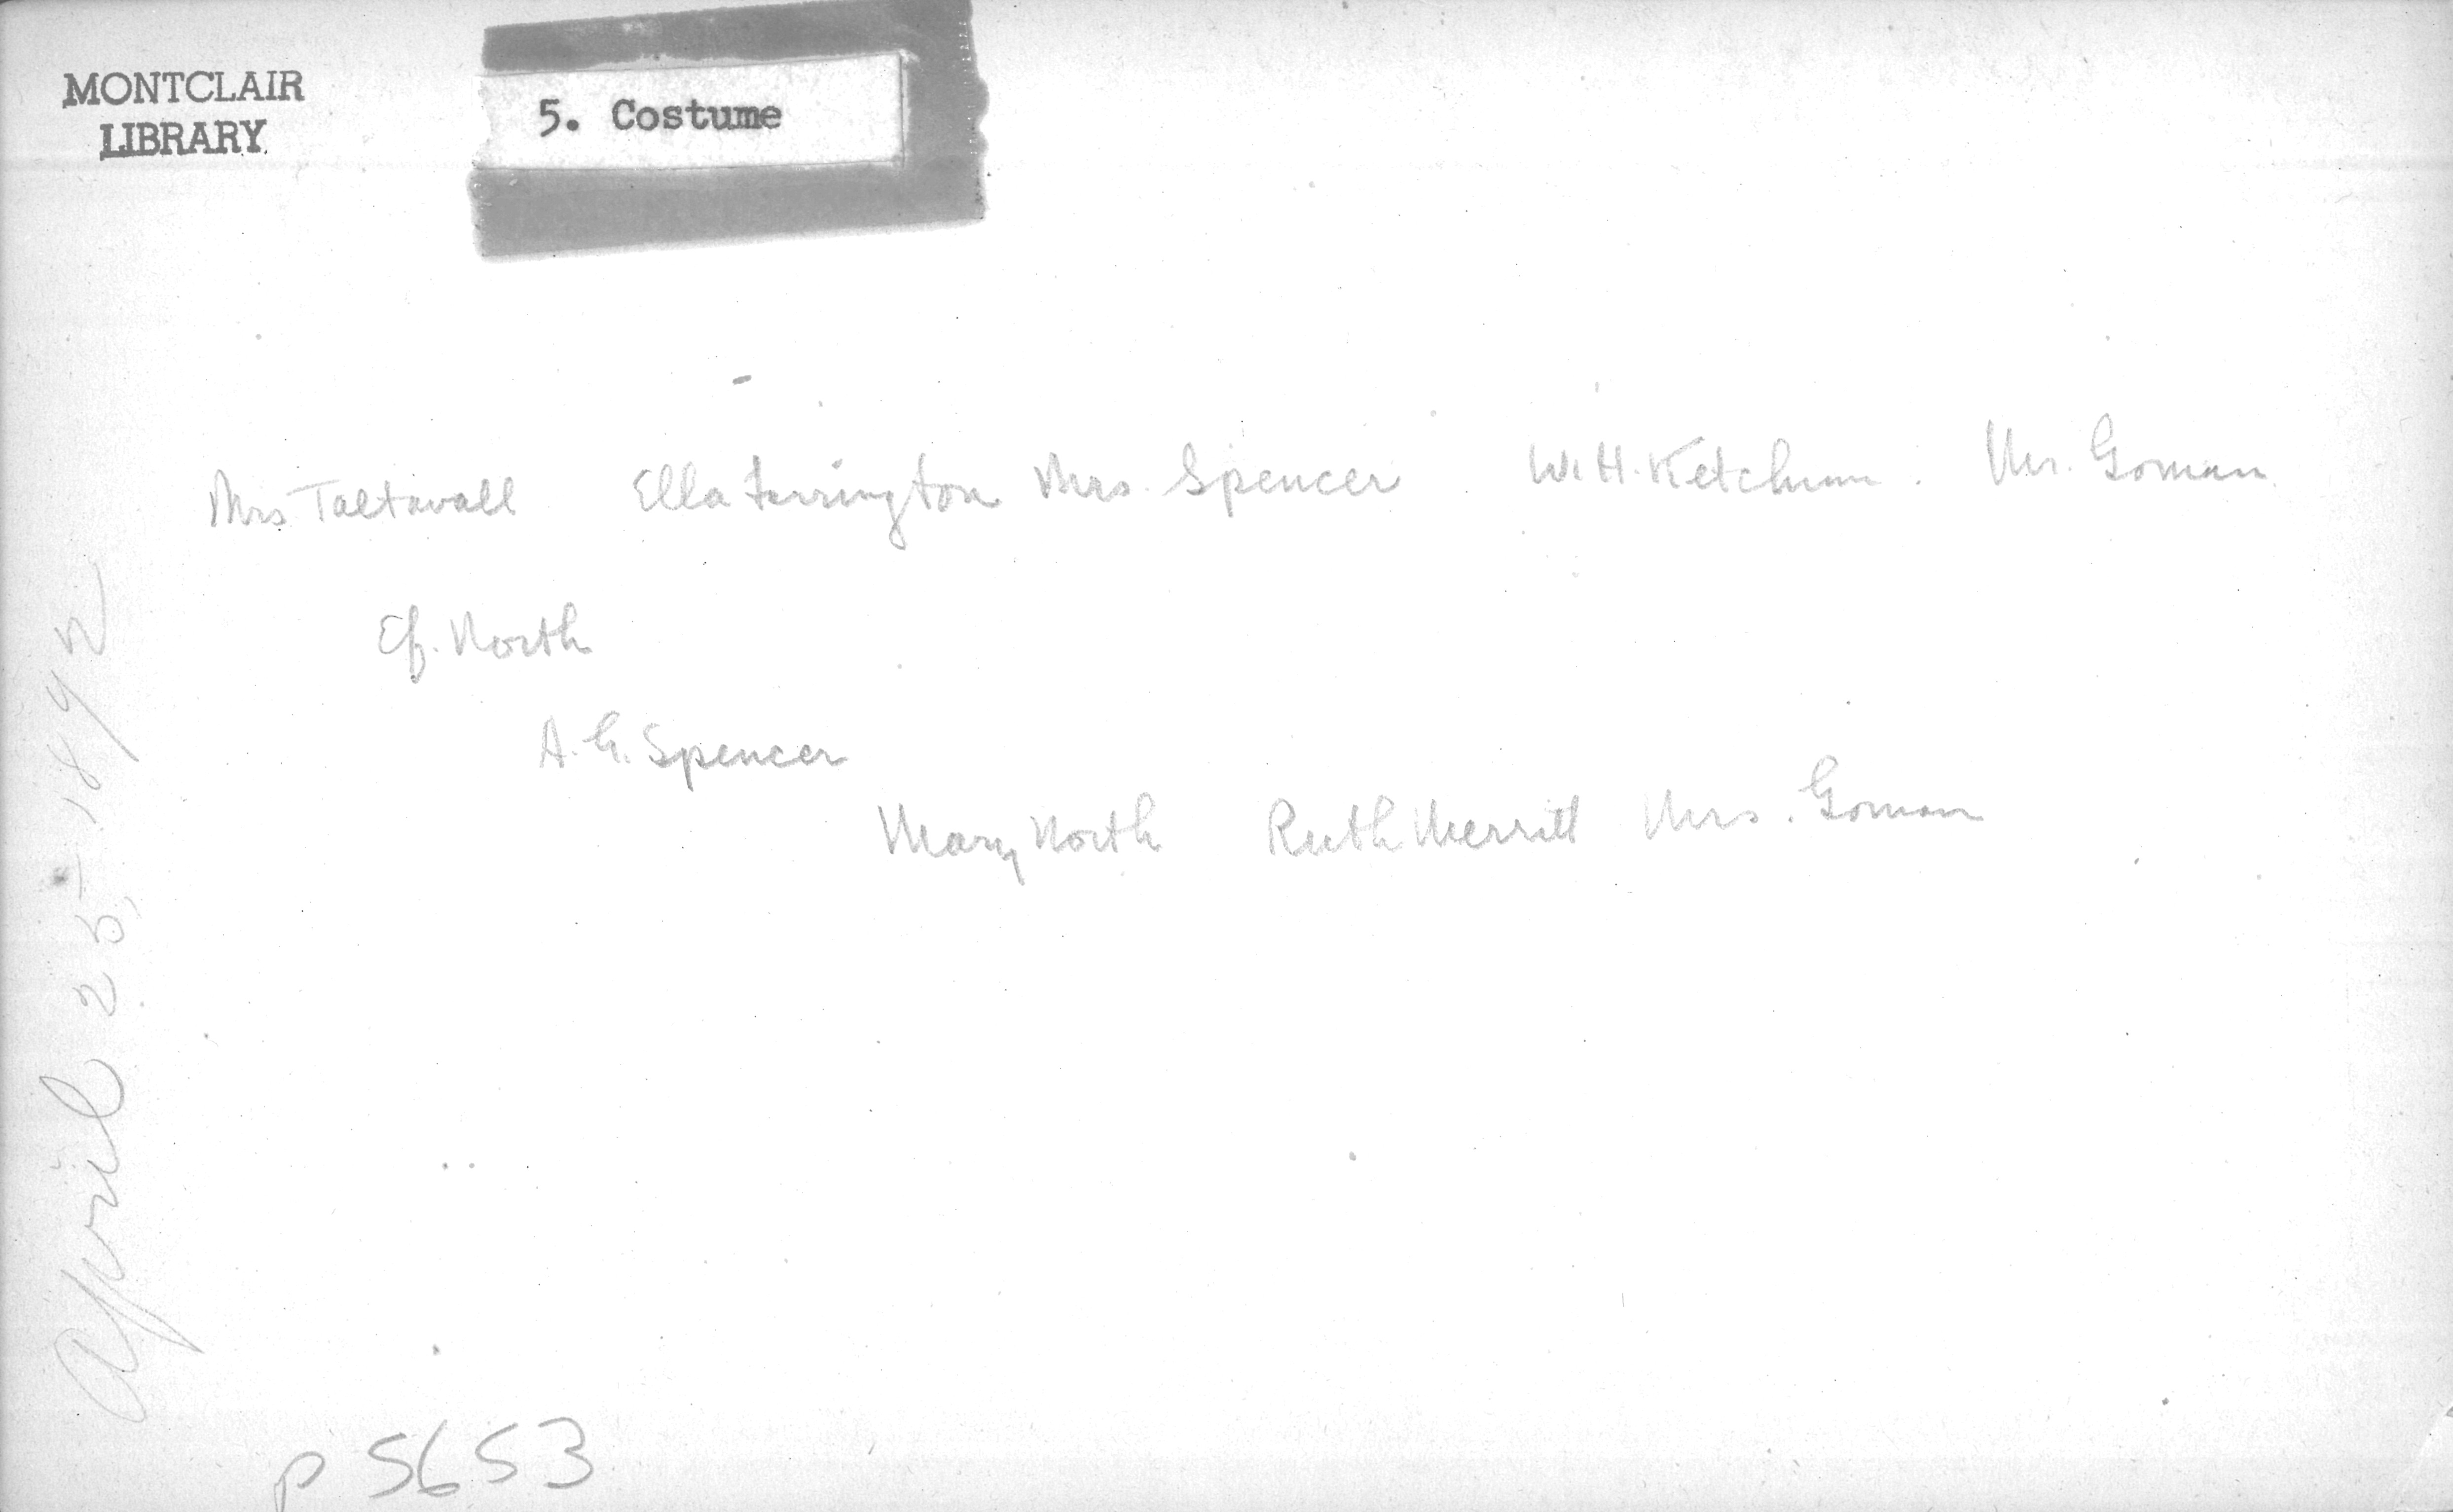 MONTCLAIR
LIBRARY
5. Costume
Mrs Taltavall Ella Ferrington Mrs. Spencer W.H. Ketchum. Mr. Goman
North
A. G. Spencer
Mary North Ruth Merritt Mrs. Goman
April 25, 1892
P 5653